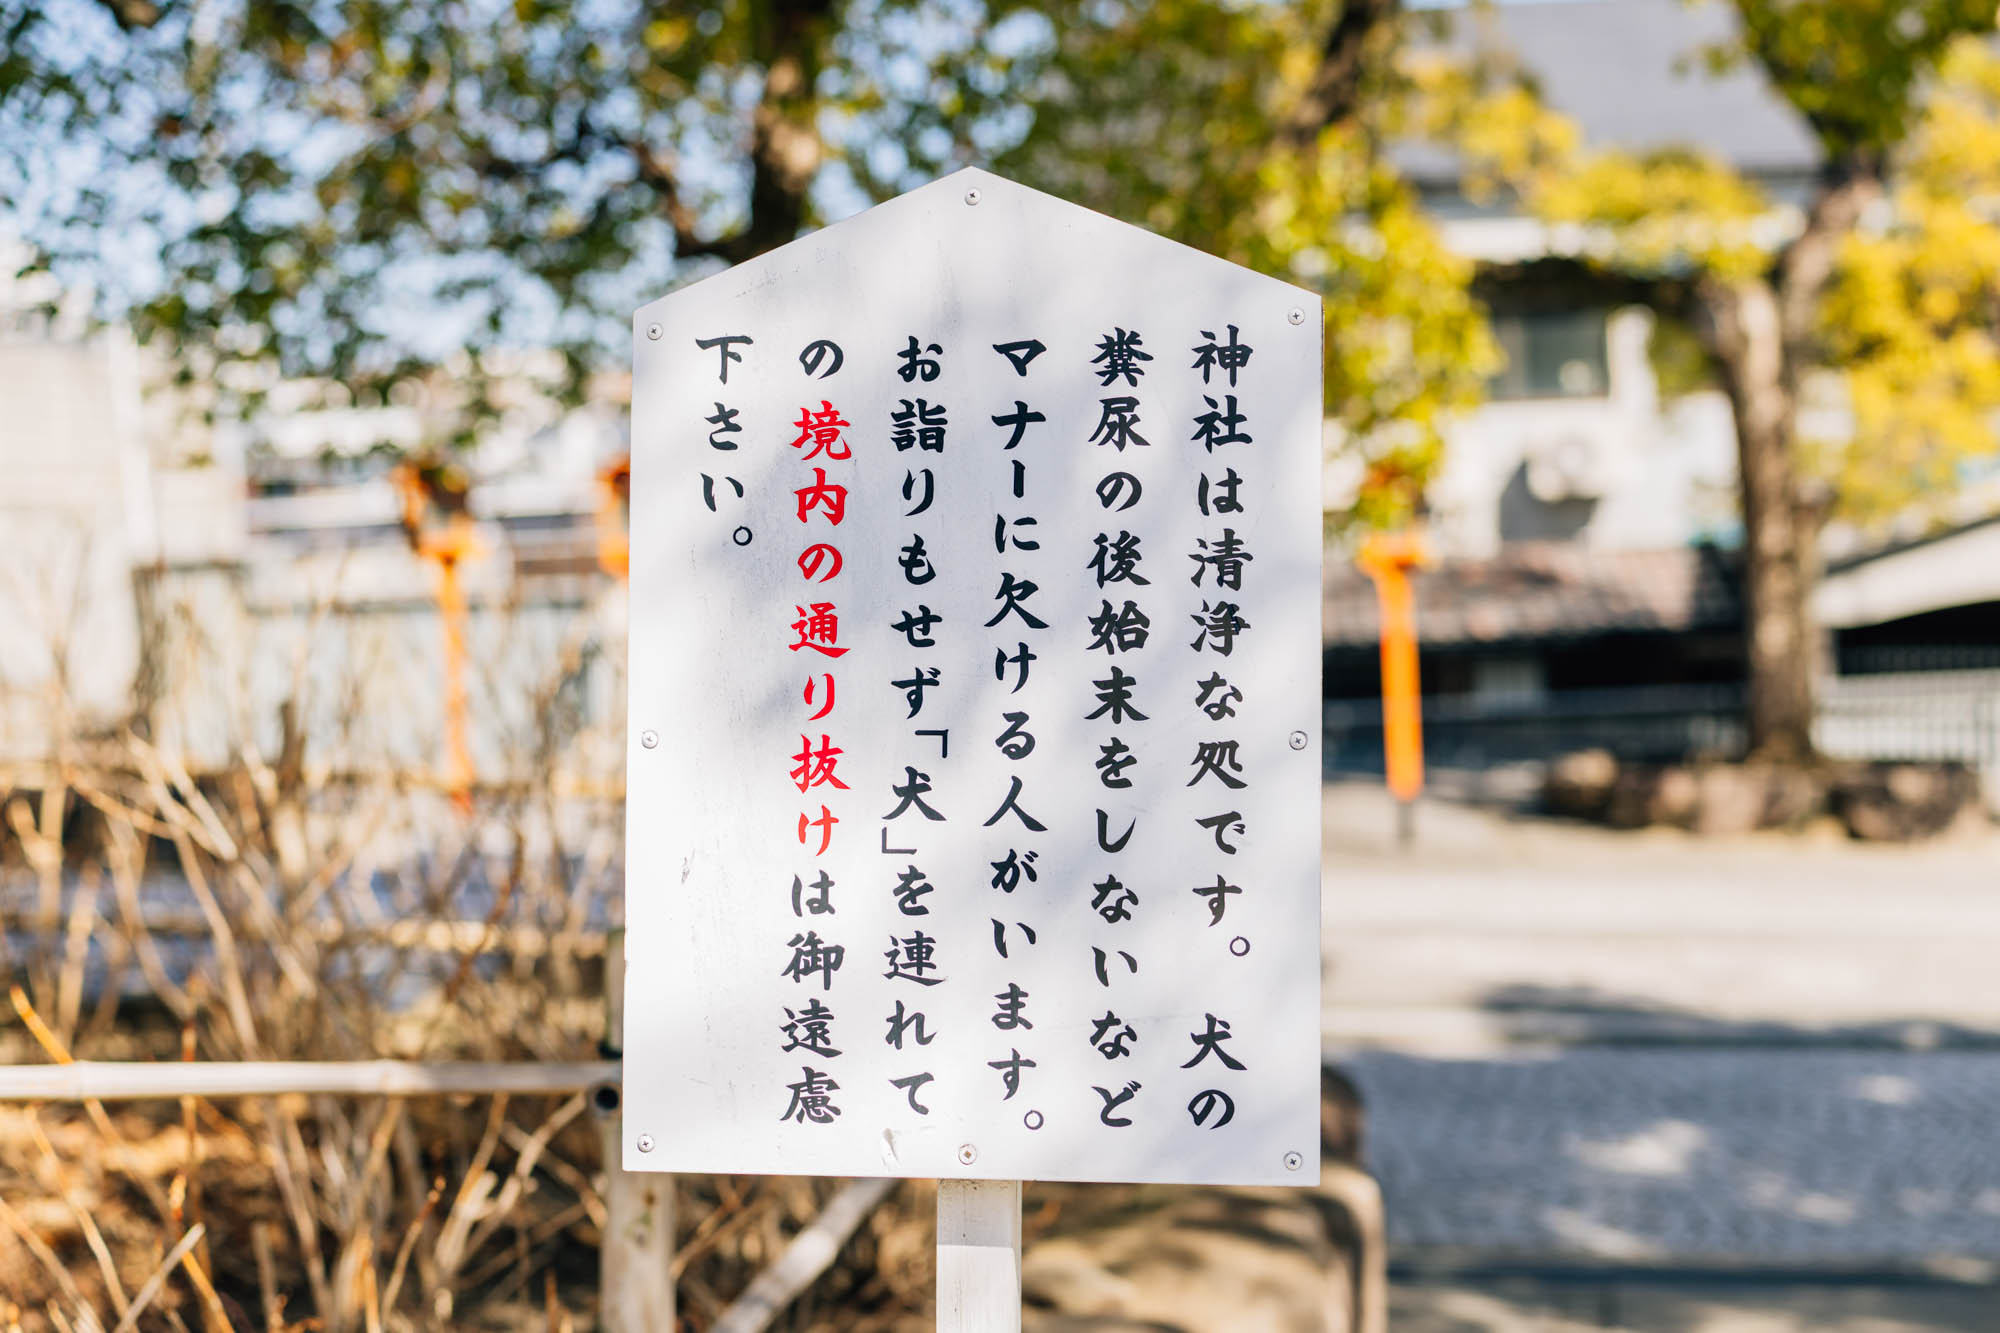 神社は清浄な処です。　犬の
糞尿の後始末をしないなど
マナーに欠ける人がいます。
お詣りもせず「犬」を連れて
の境内の通り抜けは御遠慮
下さい。